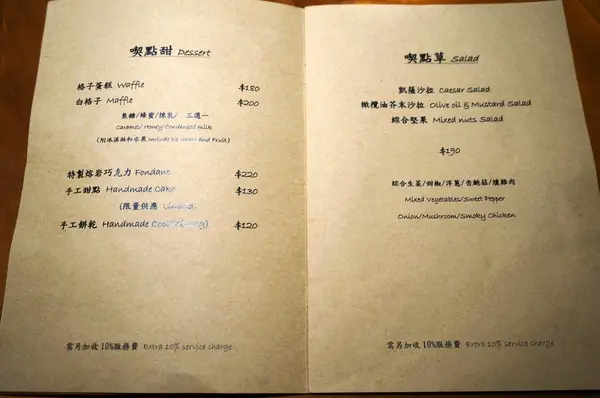 喫點甜 Dessert
格子蛋糕 Waffle $180
白格子 Maffle $200
焦糖/蜂蜜/煉乳/ 三選一
Caramel/Honey/Condensed milk
(附冰淇淋和水果 Include Ice cream and Fruit)
特製熔岩巧克力 Fondant $220
手工甜點 Handmade Cake $130
(限量供應 Limited)
手工餅乾 Handmade $120
需另加收10%服務費 Extra 10% service charge
喫點草 Salad
凱薩沙拉 Caesar Salad
橄欖油芥末沙拉 Olive oil & Mustard Salad
綜合堅果 Mixed nuts Salad
$190
綜合生菜/甜椒/洋蔥/杏鮑菇/燻雞肉
Mixed Vegetables/Sweet Pepper
Onion/Mushroom/Smoky Chicken
需另加收10%服務費 Extra 10% service charge